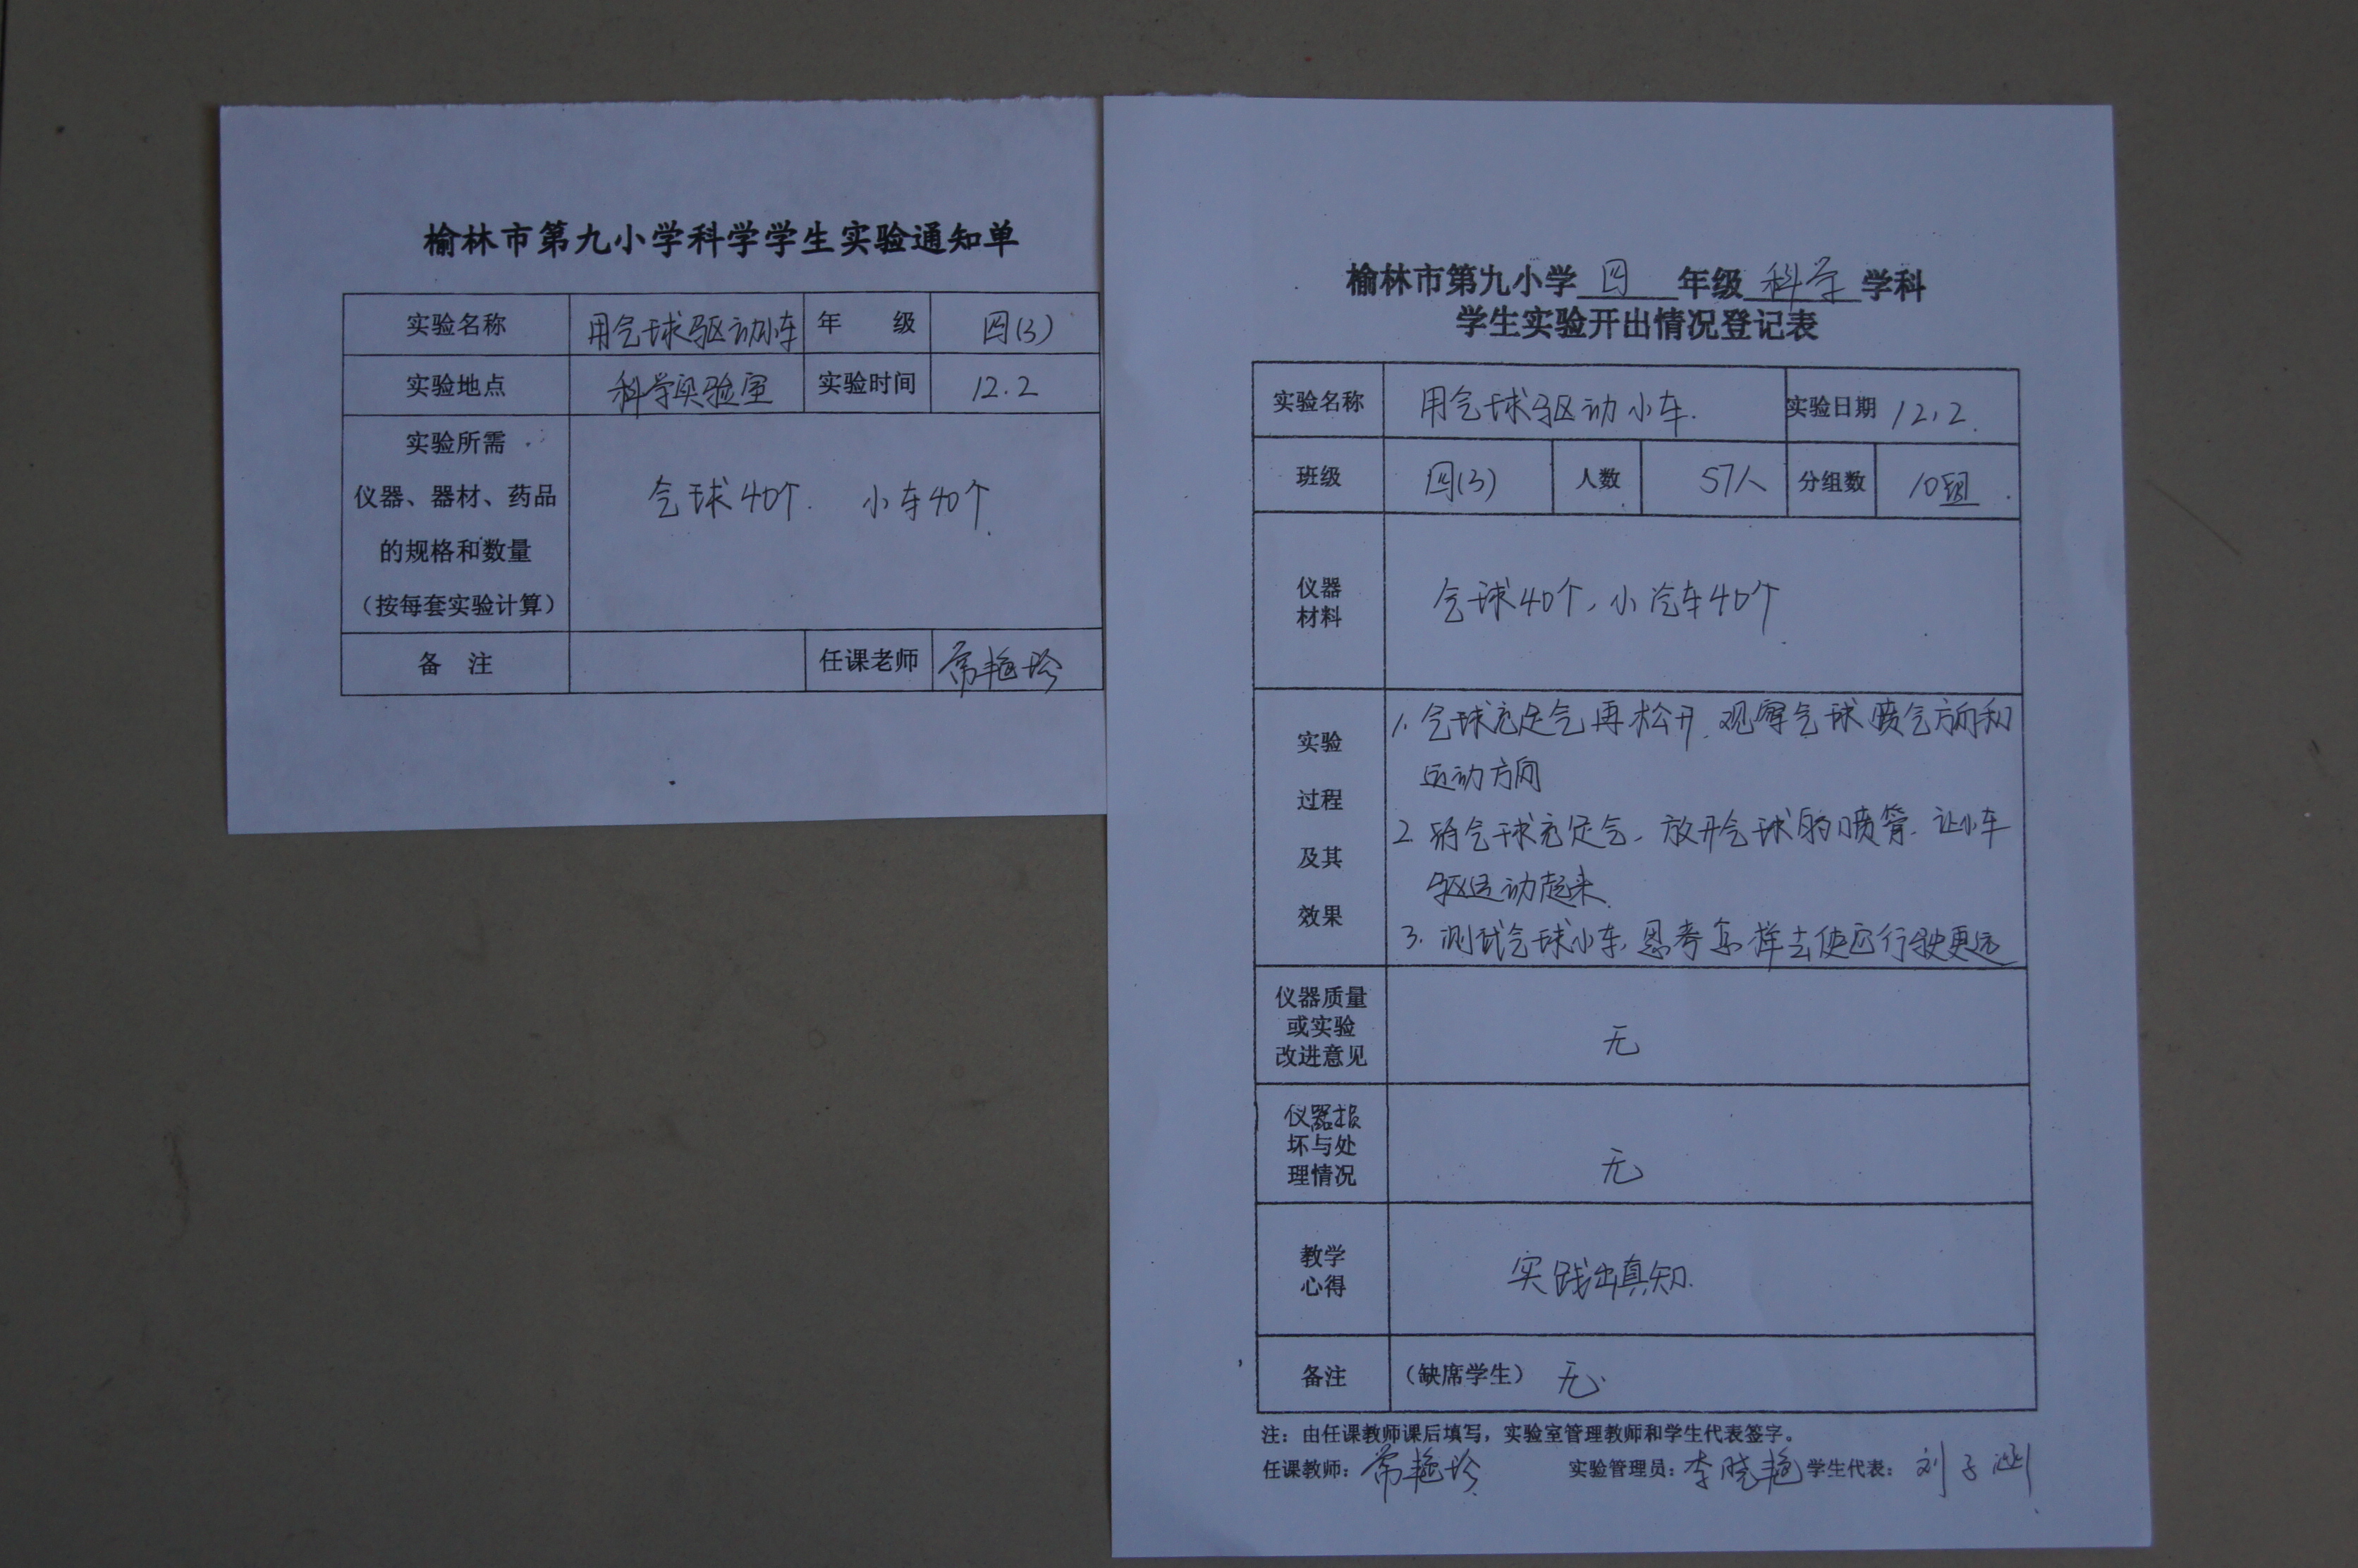 榆林市第九小学科学学生实验通知单
实验名称 用气球驱动小车 年 级 四(3)
实验地点 科学实验室 实验时间 12.2
实验所需
仪器、器材、药品
的规格和数量
（按每套实验计算）
气球40个. 小车40个.
备 注 任课老师 常艳玲
榆林市第九小学 四 年级 科学 学科
学生实验开出情况登记表
实验名称 用气球驱动小车. 实验日期 12.2.
班级 四(3) 人数 57人 分组数 10组.
仪器
材料
气球40个, 小汽车40个
实验
过程
及其
效果
1. 气球充足气再松开, 观察气球喷气方向和
运动方向
2. 将气球充足气, 放开气球的喷管, 让小车
驱动起来.
3. 测试气球小车, 思考怎样去使它行驶更远
仪器质量
或实验
改进意见
无
仪器损
坏与处
理情况
无
教学
心得
实践出真知.
备注 （缺席学生） 无.
注：由任课教师课后填写，实验室管理教师和学生代表签字。
任课教师：常艳玲 实验管理员：李晓艳 学生代表：刘子涵